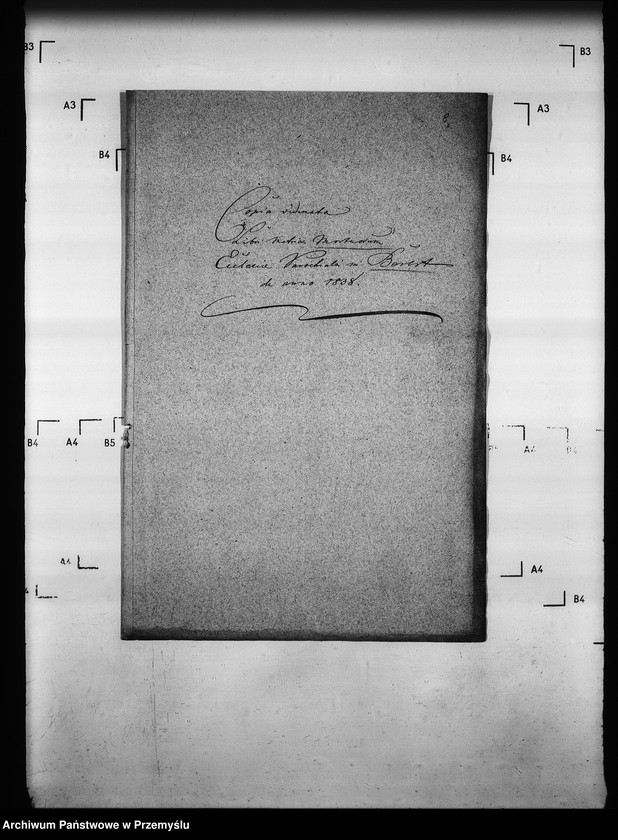 B3
B3
A3
A3
B4
B4
Copia vidimata
Libri Metrices Mortuorum
Ecclesiae Parochialis in
de anno 1838.
B4
A4
B5
A4
B4
A4
A4
B4
Archiwum Państwowe w Przemyślu